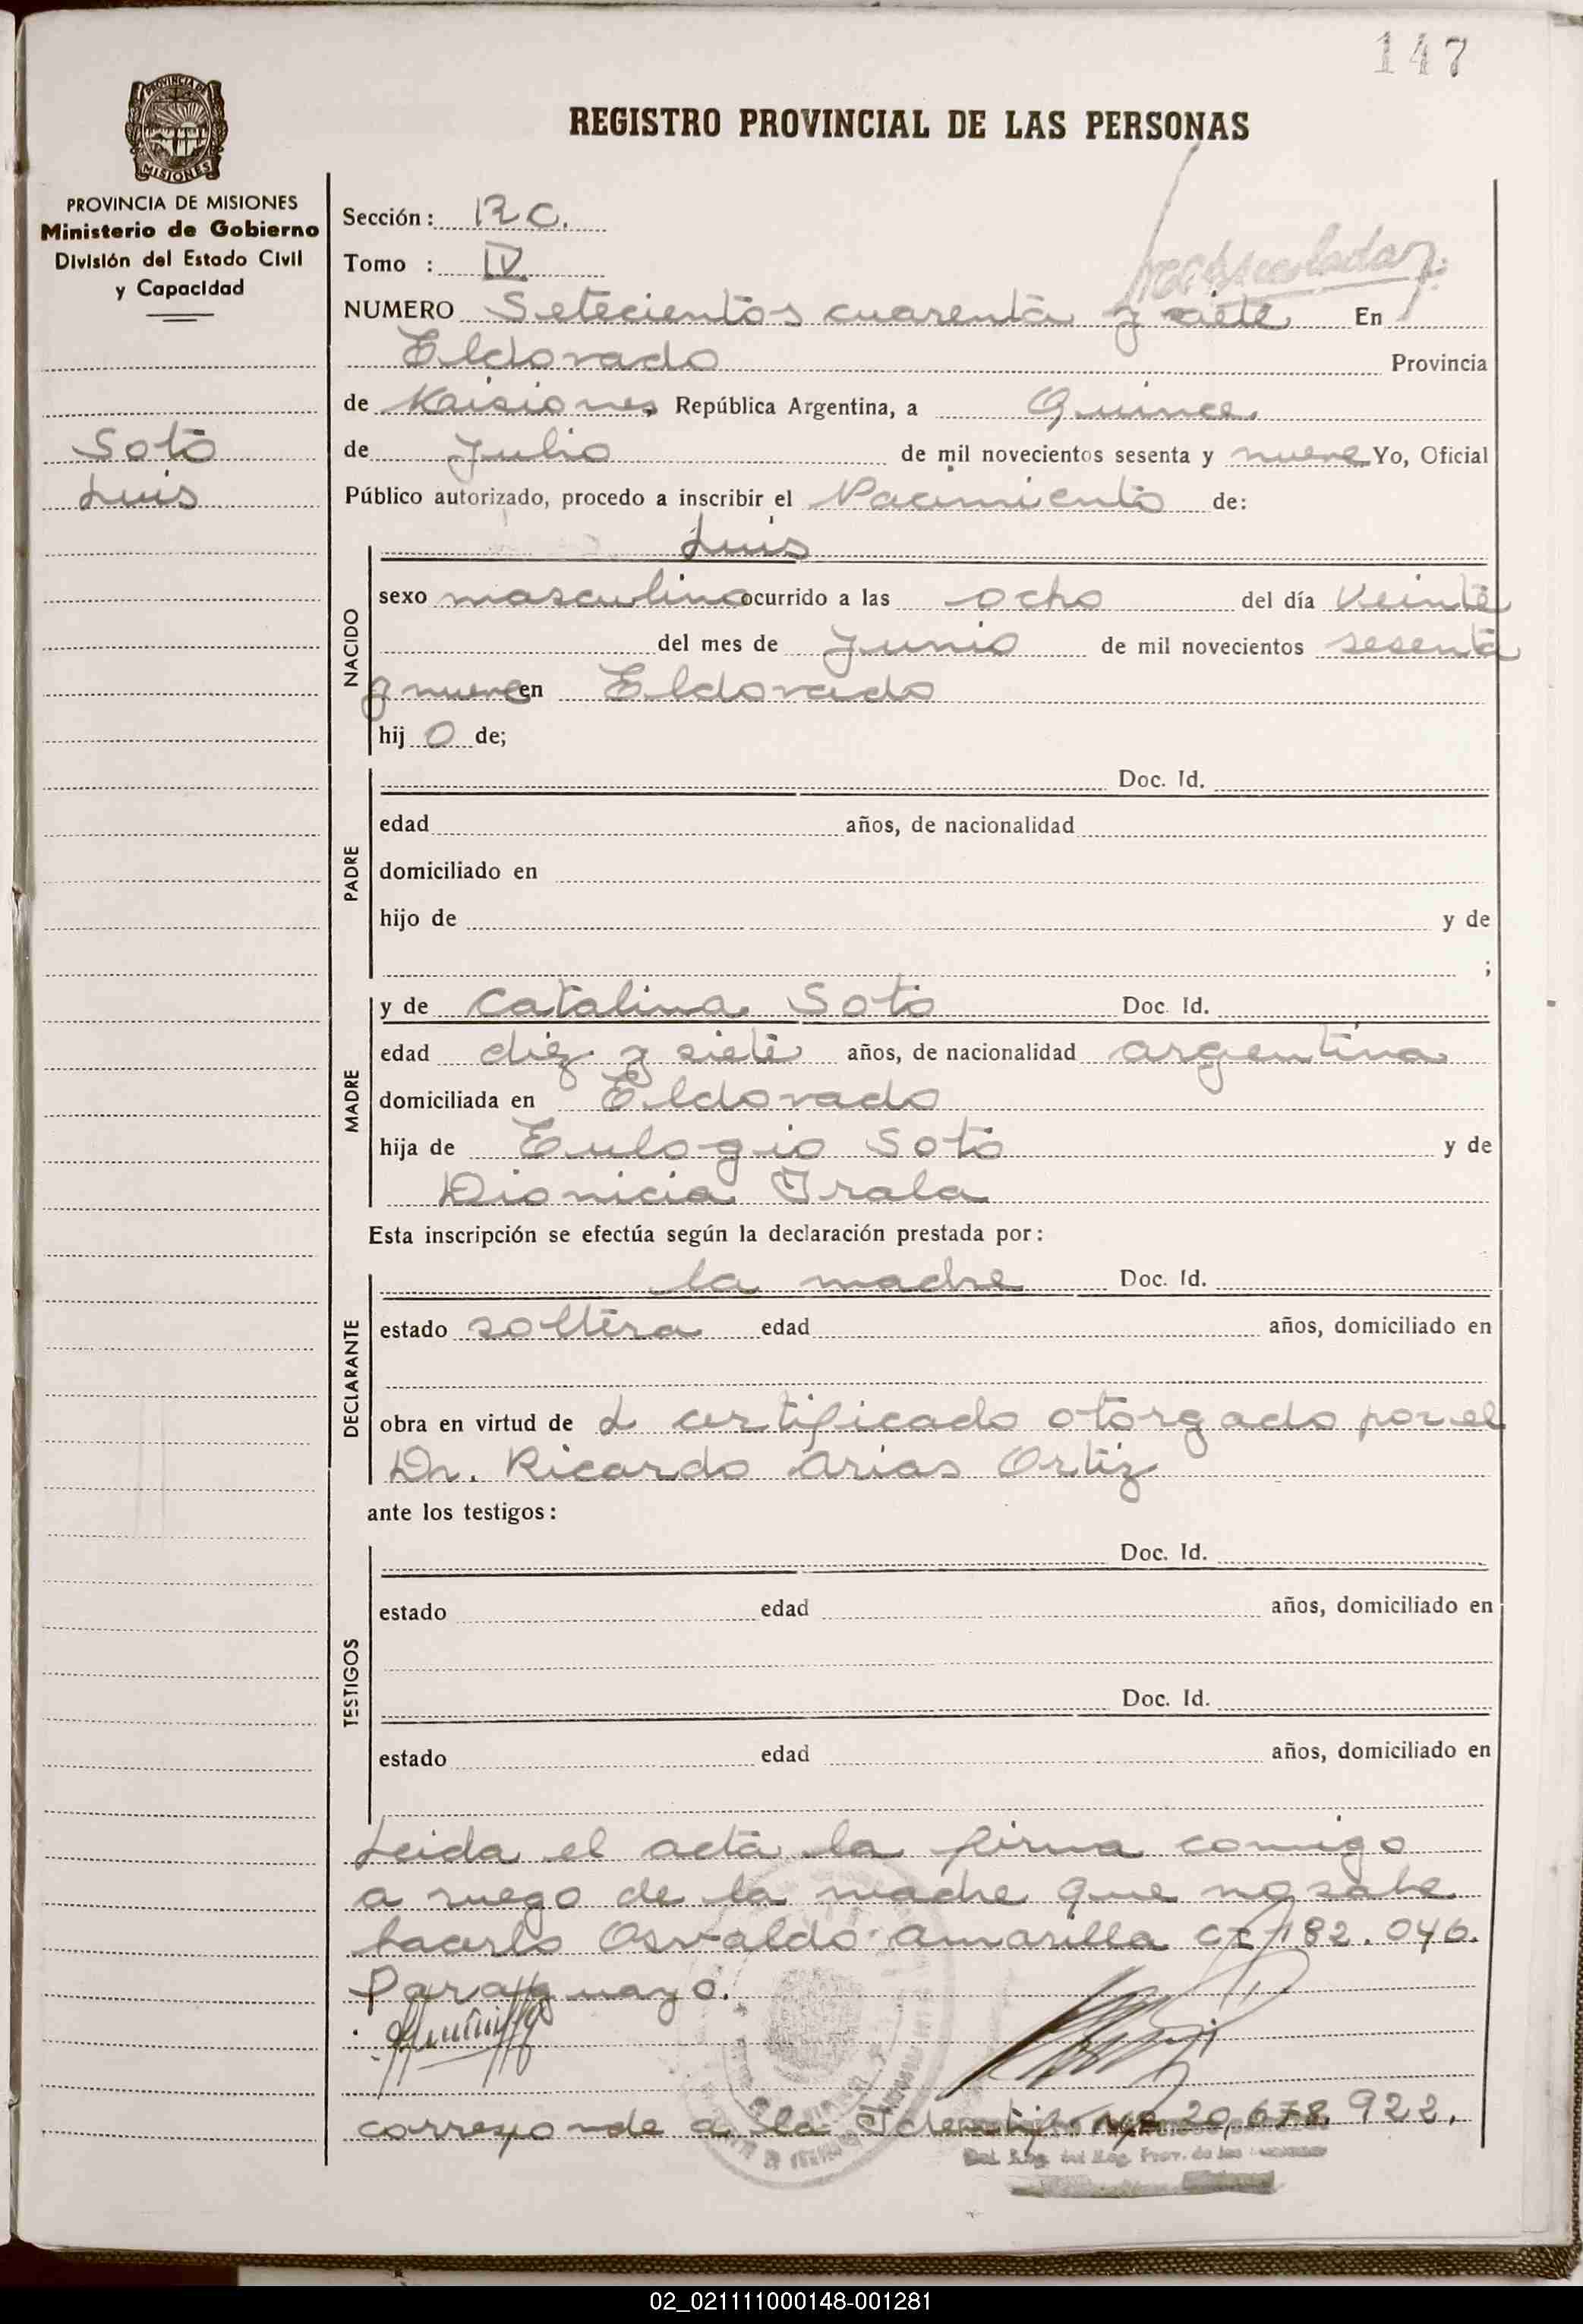 147
PROVINCIA DE
MISIONES
PROVINCIA DE MISIONES
Ministerio de Gobierno
División del Estado Civil
y Capacidad
Soto
Luis
REGISTRO PROVINCIAL DE LAS PERSONAS
Sección: R C.
Tomo : IV
NUMERO Setecientos cuarenta y siete En
Eldorado Provincia
de Misiones República Argentina, a Quince
de Julio de mil novecientos sesenta y nueve Yo, Oficial
Público autorizado, procedo a inscribir el Nacimiento de:
NACIDO
Luis
sexo masculino ocurrido a las ocho del día veinte
del mes de Junio de mil novecientos sesenta
y nueve en Eldorado
hij o de;
PADRE
Doc. Id.
edad años, de nacionalidad
domiciliado en
hijo de y de
;
MADRE
y de Catalina Soto Doc. Id.
edad diez y siete años, de nacionalidad argentina
domiciliada en Eldorado
hija de Eulogio Soto y de
Dionicia Irala
Esta inscripción se efectúa según la declaración prestada por:
DECLARANTE
la madre Doc. Id.
estado soltera edad años, domiciliado en
obra en virtud de certificado otorgado por el
Dr. Ricardo Arias Ortiz
ante los testigos:
TESTIGOS
Doc. Id.
estado edad años, domiciliado en
Doc. Id.
estado edad años, domiciliado en
Leida el acta la firma comigo
a ruego de la madre que no sabe
hacerlo Osvaldo Amarilla CI 182.046.
Paraguayo.
corresponde a la 20,678,922.
02_021111000148-001281